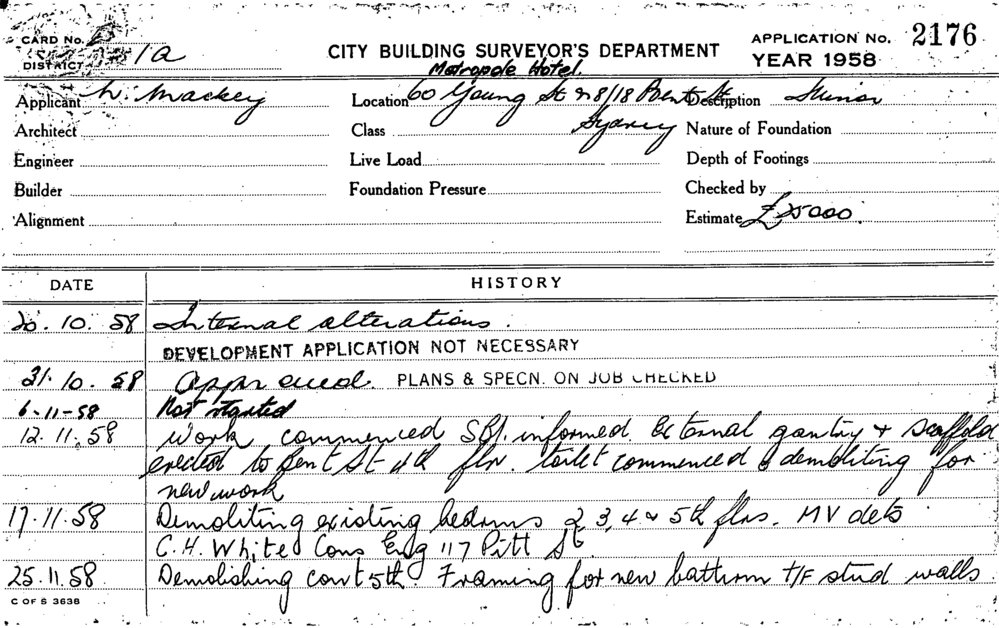 CARD No. 1a
DISTRICT
CITY BUILDING SURVEYOR'S DEPARTMENT
APPLICATION No. 2176
YEAR 1958
Metropole Hotel.
Applicant Mackey
Location 60 Young St & 8/18 Bent St
Sydney
Description Minor
Architect
Class
Nature of Foundation
Engineer
Live Load
Depth of Footings
Builder
Foundation Pressure
Checked by
Alignment
Estimate £25000.
DATE HISTORY
20. 10. 58 Internal alterations.
DEVELOPMENT APPLICATION NOT NECESSARY
31. 10. 58 Approved. PLANS & SPECN. ON JOB CHECKED
6-11-58 Not started
12. 11. 58 Work commenced SBI. informed. External gantry & scaffold
erected to Bent St 4th flr. toilet commenced & demoliting for
new work
17. 11. 58 Demoliting existing bedrms 2, 3, 4 & 5th flrs. MV dets
C. H. White Cons Eng 117 Pitt St
25. 11. 58. Demolishing cont 5th Framing for new bathrm T/F stud walls
C OF S 3638